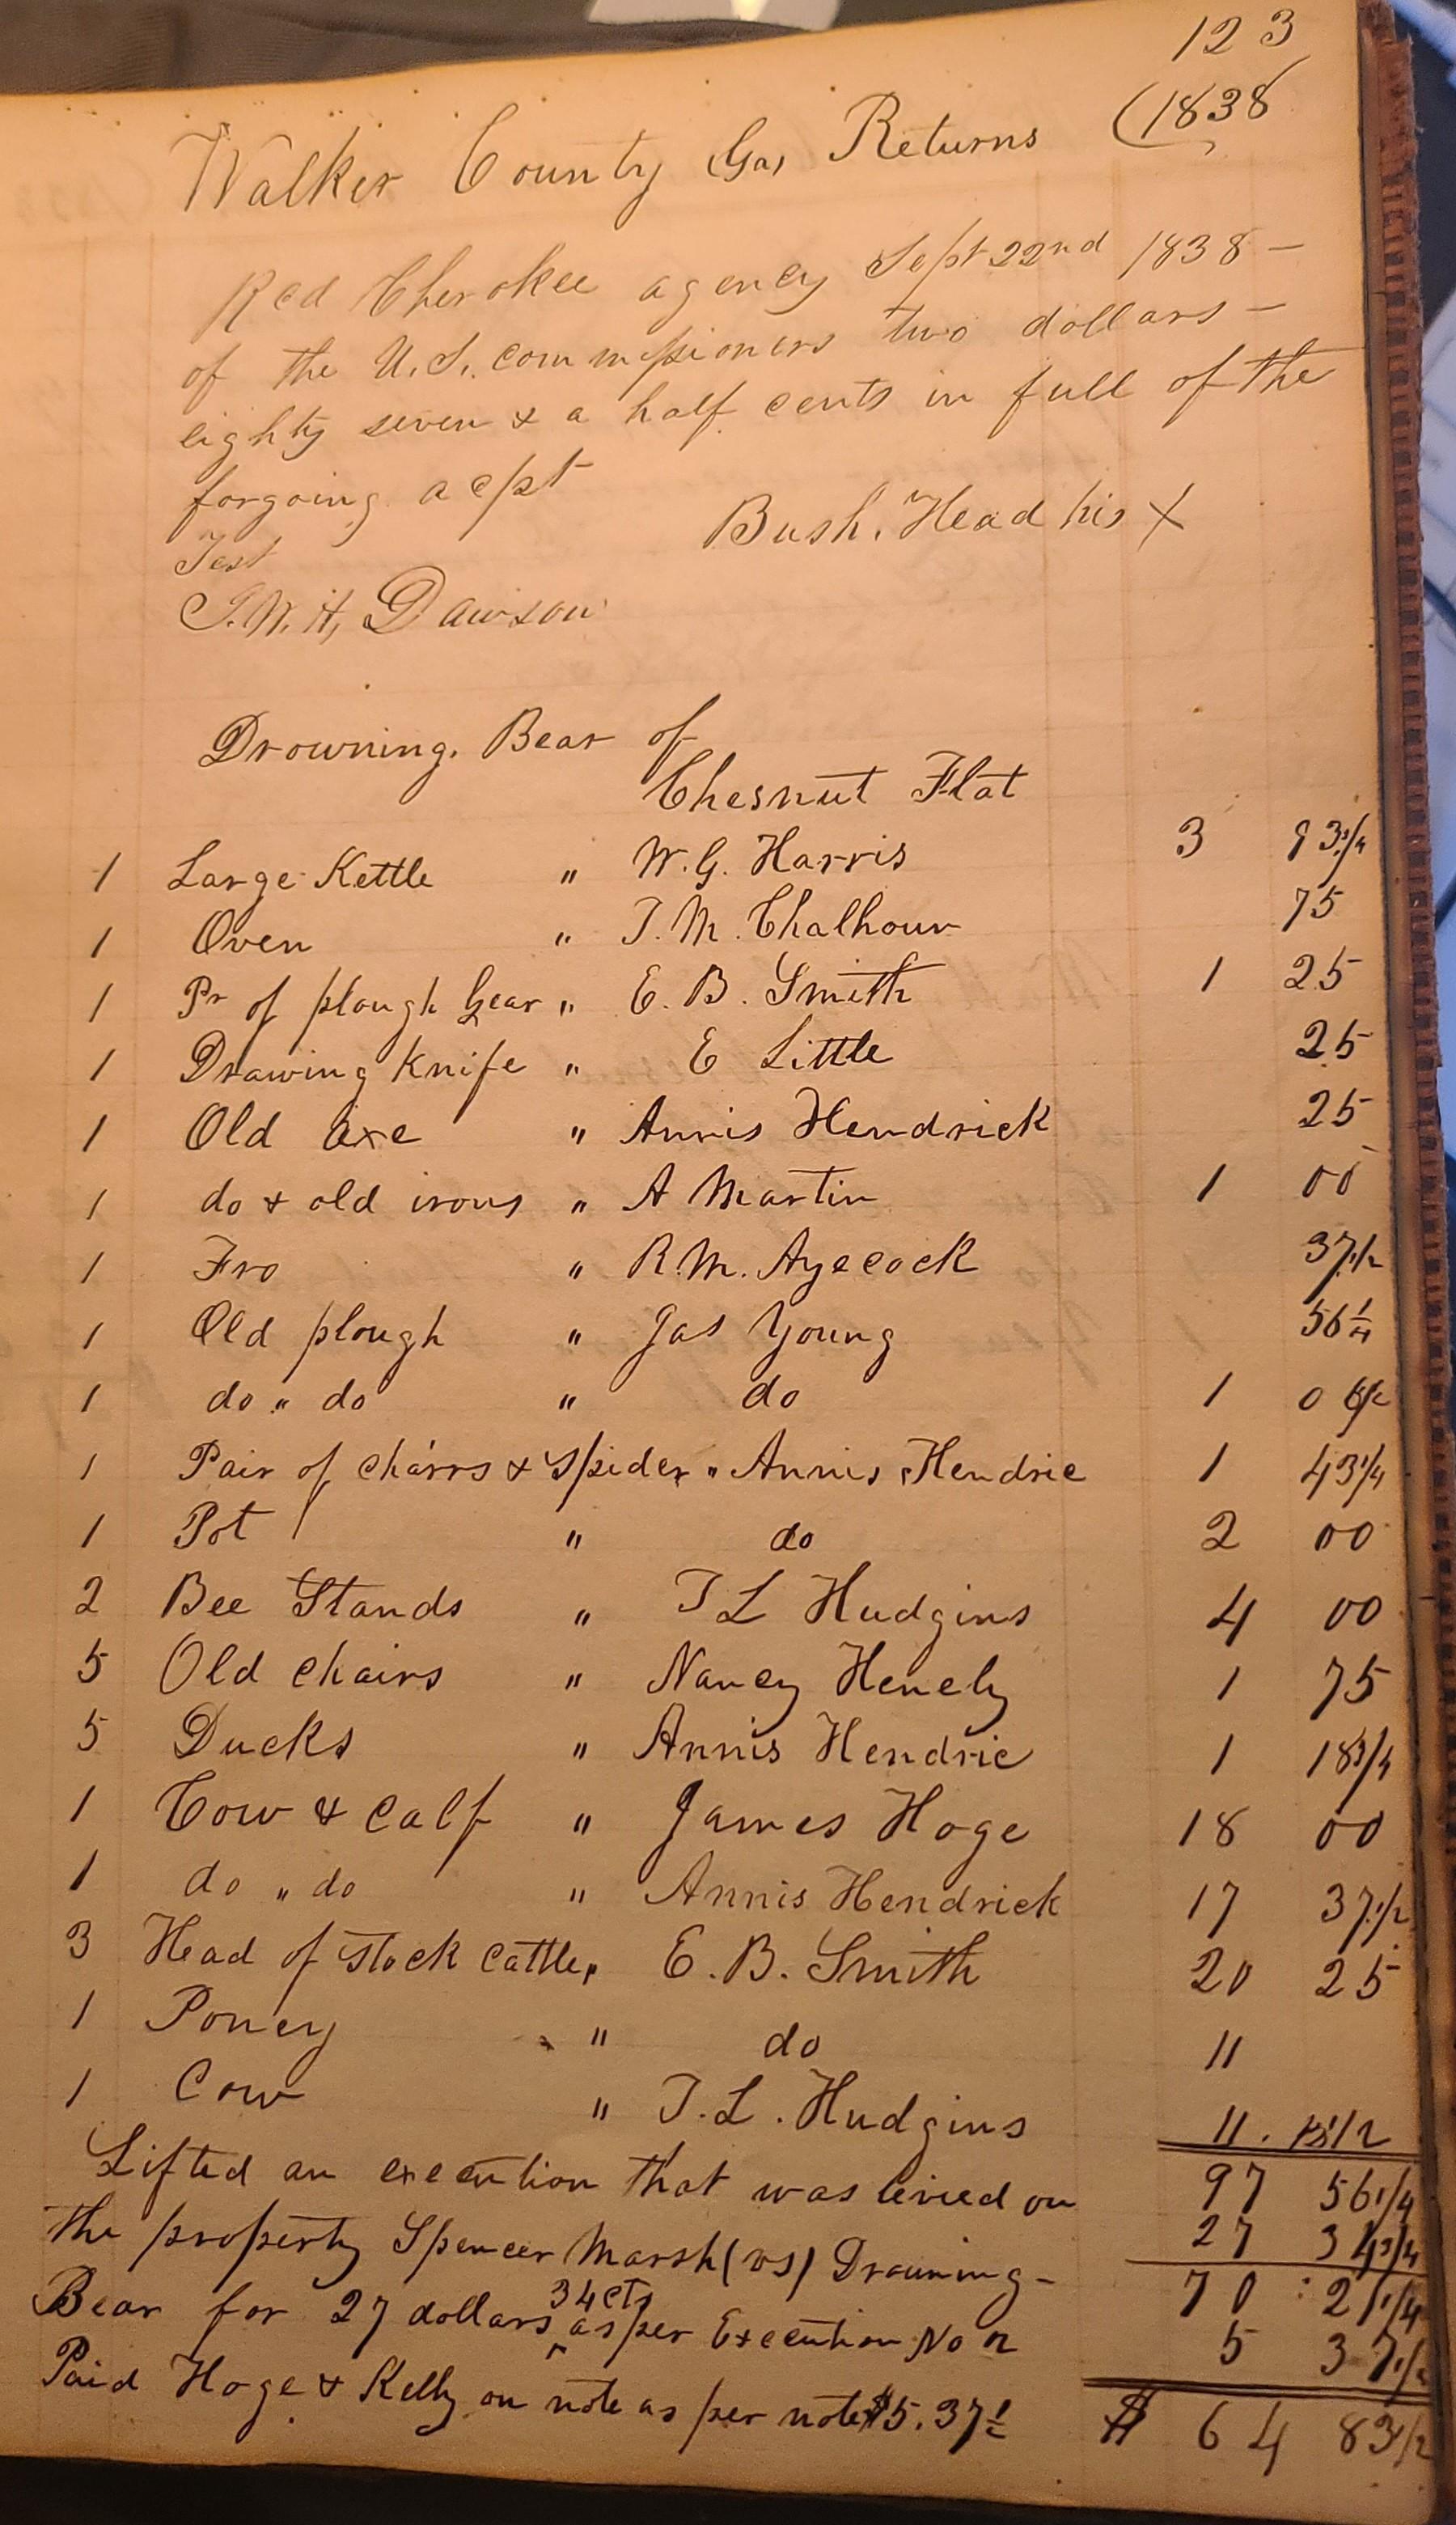 123
Walker County (Ga) Returns (1838
Recd Cherokee agency Sept 22nd 1838 —
of the U.S. commissioners two dollars —
eighty seven & a half cents in full of the
forgoing acpt
Bush. Head his X
Test
T.W.H, Dawson
Drowning. Bear of
Chesnut Flat
1 Large Kettle " W.G. Harris 3 93 3/4
1 Oven " T.M. Chalhoun 75
1 Pr of plough Gear " E.B. Smith 1 25
1 Drawing Knife " E Little 25
1 Old axe " Annis Hendrick 25
1 do & old irons " A Martin 1 00
1 Fro " R.M. Ayecock 37 1/2
1 Old plough " Jas Young 56 1/4
1 do " do " do 1 06 1/2
1 Pair of chairs & Spider " Annis Hendric 1 43 1/4
1 Pot " do 2 00
2 Bee Stands " T L Hudgins 4 00
5 Old chairs " Nancy Henely 1 75
5 Ducks " Annis Hendric 1 18 3/4
1 Cow & calf " James Hoge 18 00
1 do " do " Annis Hendrick 17 37 1/2
3 Head of stock cattle " E.B. Smith 20 25
1 Poney " do 11
1 Cow " T.L. Hudgins 11.
Lifted an execution that was levied on 97 56 1/4
the property Spencer Marsh (vs) Drowning- 27 34 3/4
Bear for 27 dollars 34 cts as per Execution No 70 : 21 1/4
Paid Hoge & Kelly on note as per note $5.37 1/2 5 37 1/2
$ 64 83 1/2